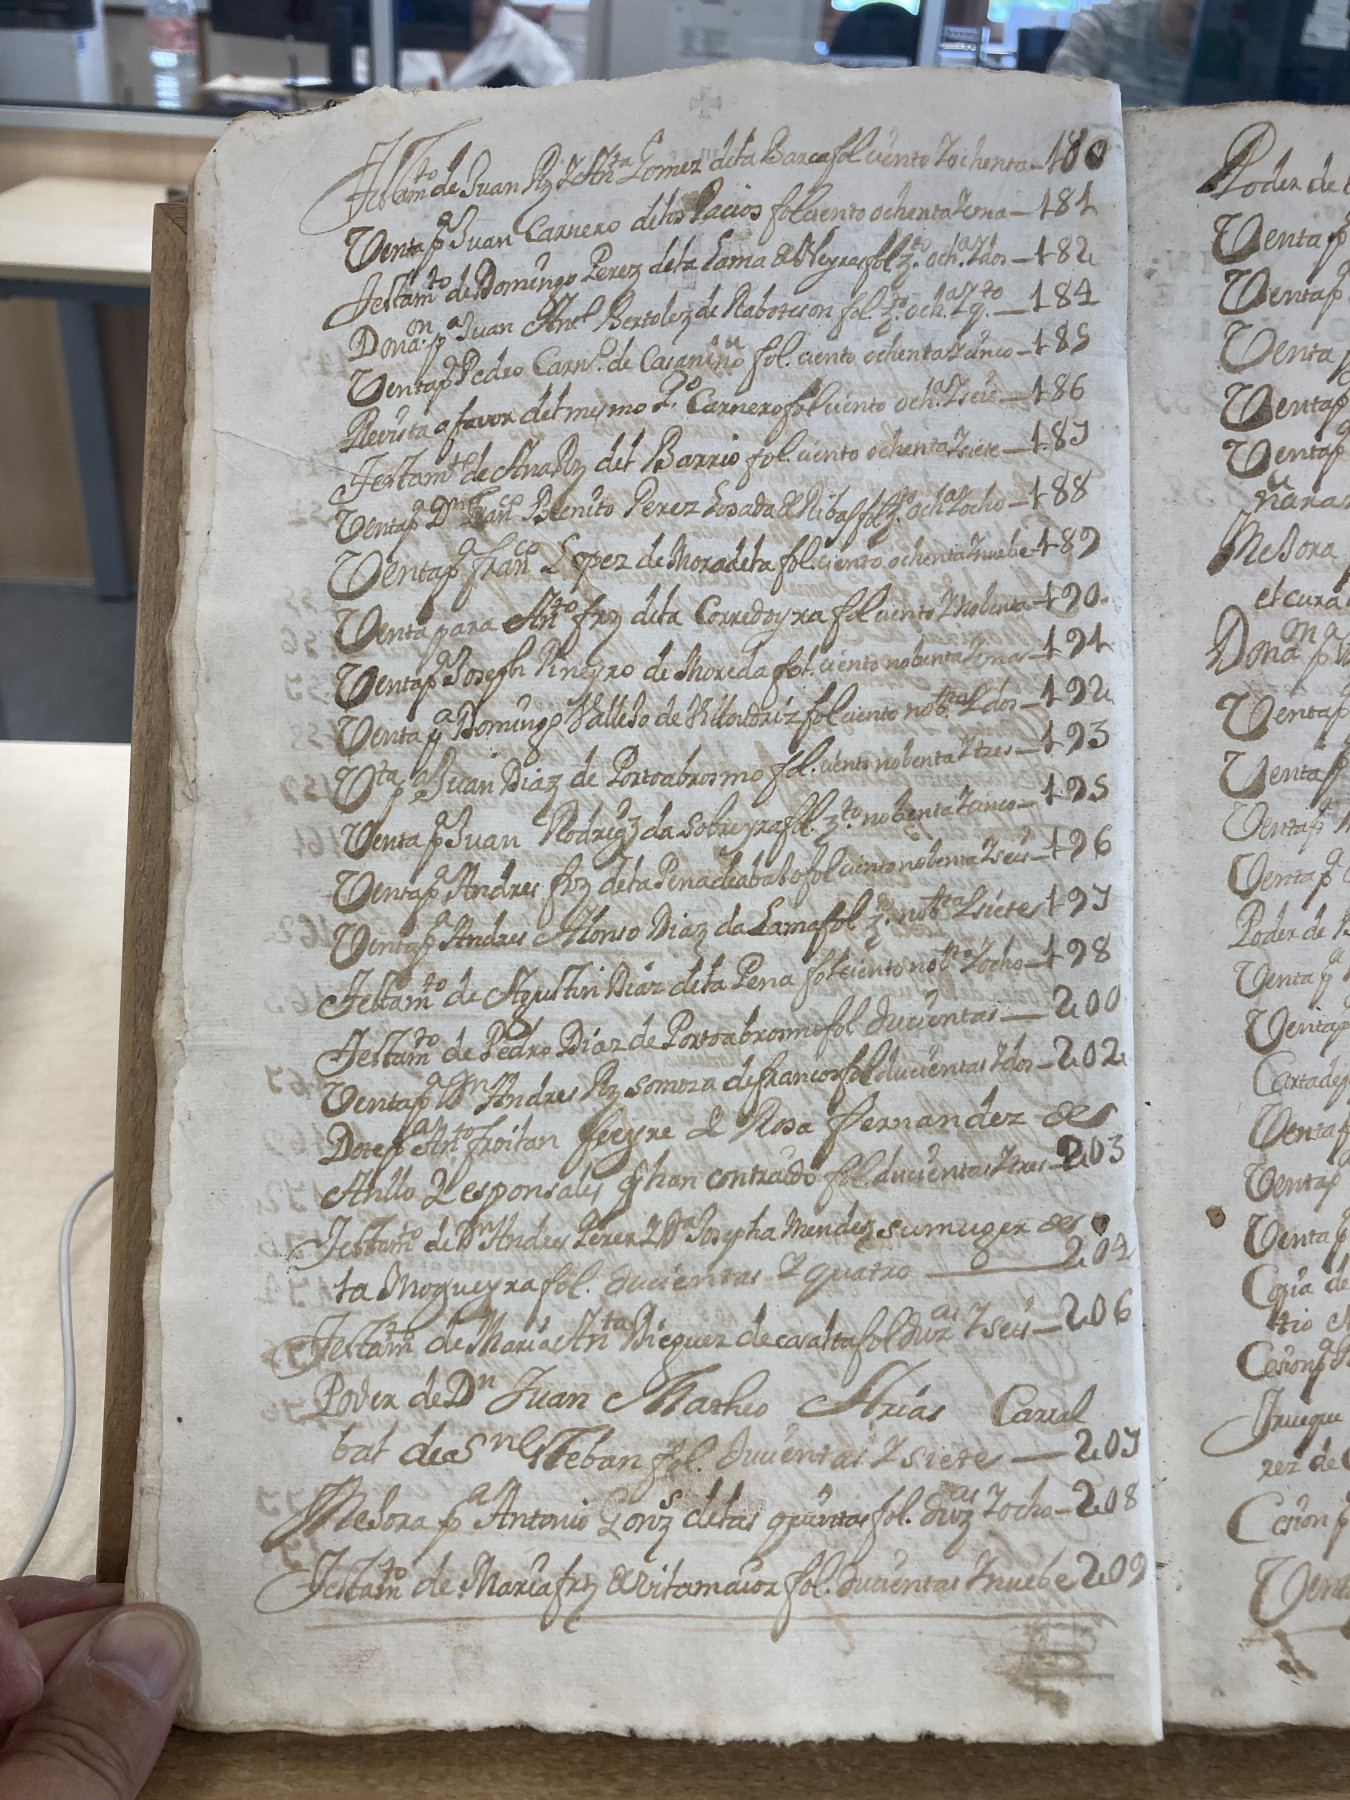 Testamto de Juan Rz y Anta Gomez dela Barca fol ciento y ochenta — 180
Venta pa Juan Carnero delos Pacios fol ciento ochenta y una — 181
Testamto de Domingo Perez dela Lama & Neyra fol zto. ocha y dos — 182
Donaon pa Juan Anl Bertolez de Raboteson fol zto. ocha y qto — 184
Venta pa Pedro Carno. de Casanino fol. ciento ochenta y cinco — 185
Revista a favor del mesmo Po Carnero fol ciento ocha y seis — 186
Testamto de Ana Rz del Barrio fol. ciento ochenta y siete — 187
Venta pa Dn Franco Benito Perez Losada & Ribas fol zto. ocha y ocho — 188
Venta pa Franco Lopez de Moradela fol. ciento ochenta y nuebe — 189
Venta para Anto frz dela Corredoyra fol ciento y nobenta — 190.
Venta pa Joseph Pineyro de Moreda fol. ciento nobenta y una — 191
Venta pa Domingo Vallejo de Vilouriz fol ciento nobta y dos — 192
Vta pa Juan Diaz de Portoabrosmo fol. ciento nobenta y tres — 193
Venta pa Juan Rodrigz da Sobreyra fol. zto nobenta y cinco — 195
Venta pa Andres frz dela Pena de abajo fol ciento nobenta y seis — 196
Venta pa Andres Alonso Diaz da Lama fol zto. nobta y siete 197
Testamto de Agustin Diaz dela Pena fol ciento nobta y ocho — 198
Testamto de Pedro Diaz de Portoabrosmo fol ducientas — 200
Venta pa Dn Andres Rz somoza de francos fol ducientas y dos — 202
Dote pa Anto. froilan freyre & Rosa Fernandez de
Anllo y esponsales q han contraido fol. ducientas y tres — 203
Testamto de Dn Andres Perez y Da Josepha Mendez su muger de
la Nogueyra fol. ducientas y quatro — 204
Testamto de Maria Anta Dieguez de casalta fol duzas y seis — 206
Poder de Dn Juan Matheo Arias Carral
bal de Sn Esteban fol. ducientas y siete — 207
Mejora pa Antonio Gonzs delas quintas fol. duzas y ocho — 208
Testamto de Maria frz & vilamaior fol. ducientas y nuebe 209
Poder de
Venta p
Venta p
Venta
Venta p
Venta p
Mejora
el cura
Donaon p
Venta p
Venta p
Venta p
Venta p
Poder de
Venta
Venta p
Venta p
Venta p
Venta p
Copia de
Cesion p
Trueque
rez de
Cesion p